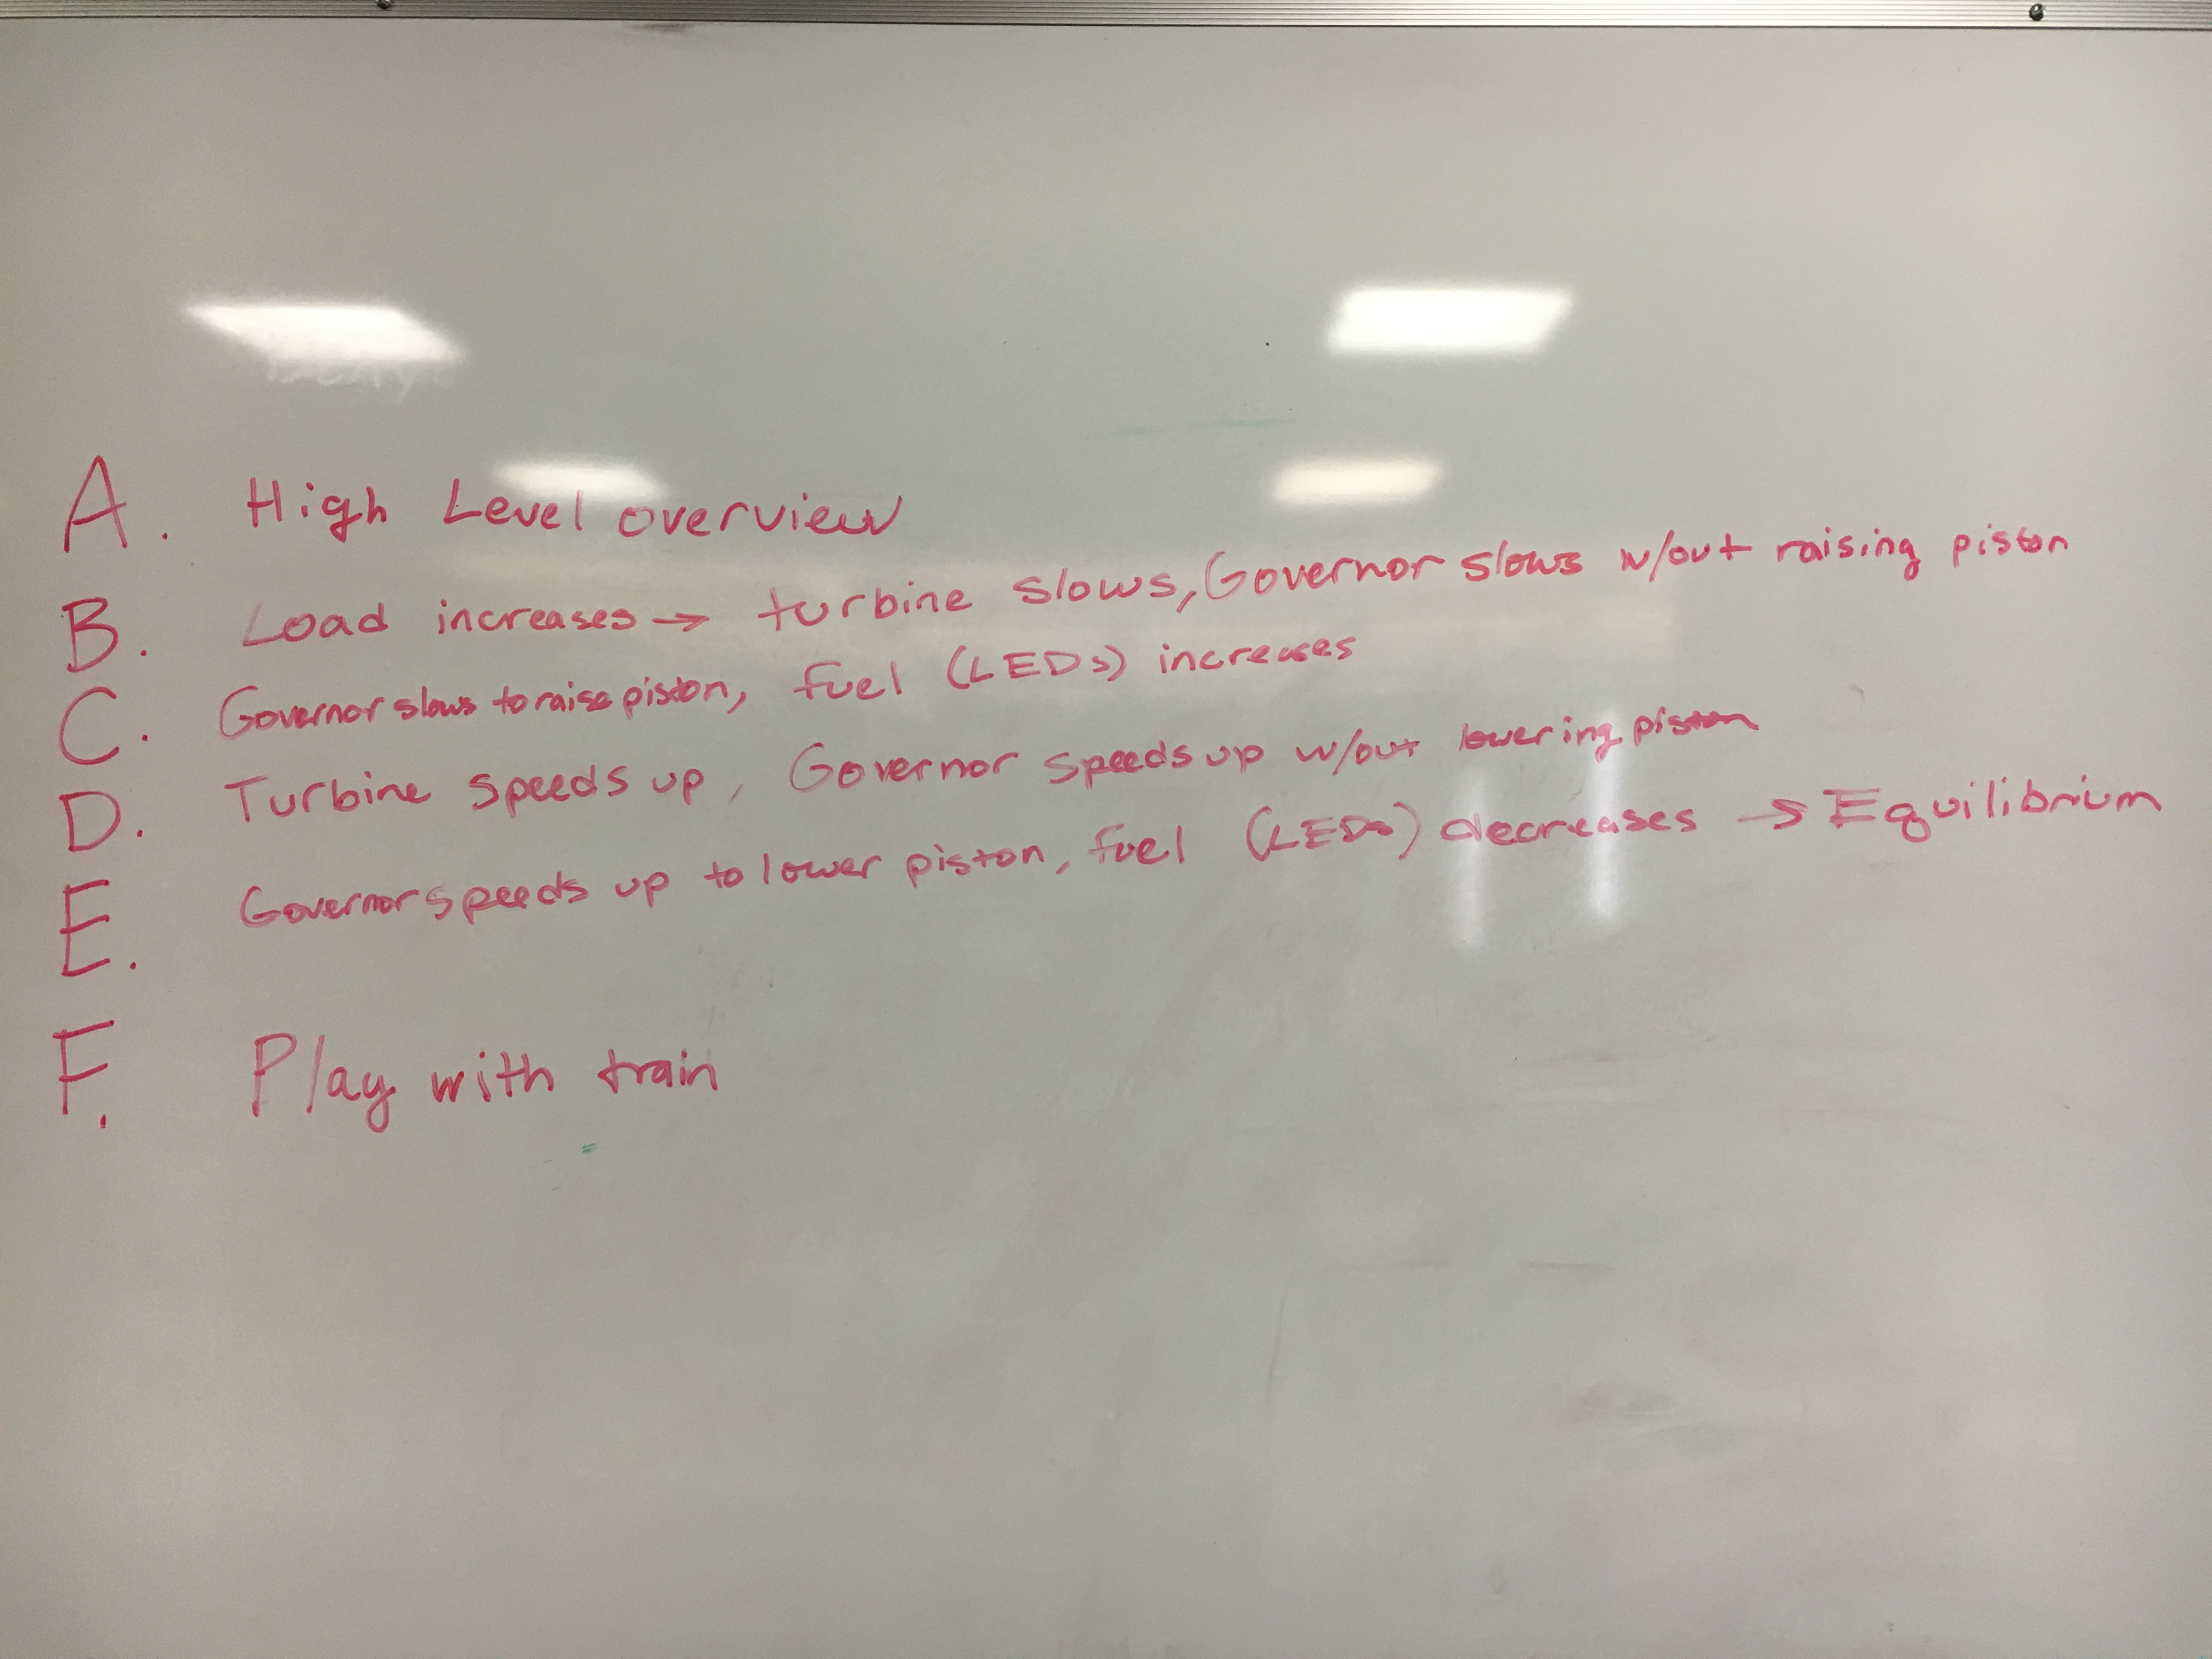 A. High Level overview
B. Load increases → turbine slows, Governor slows w/out raising piston
C. Governor slows to raise piston, fuel (LEDs) increases
D. Turbine speeds up, Governor speeds up w/out lowering piston
E. Governor speeds up to lower piston, fuel (LEDs) decreases → Equilibrium
F. Play with train